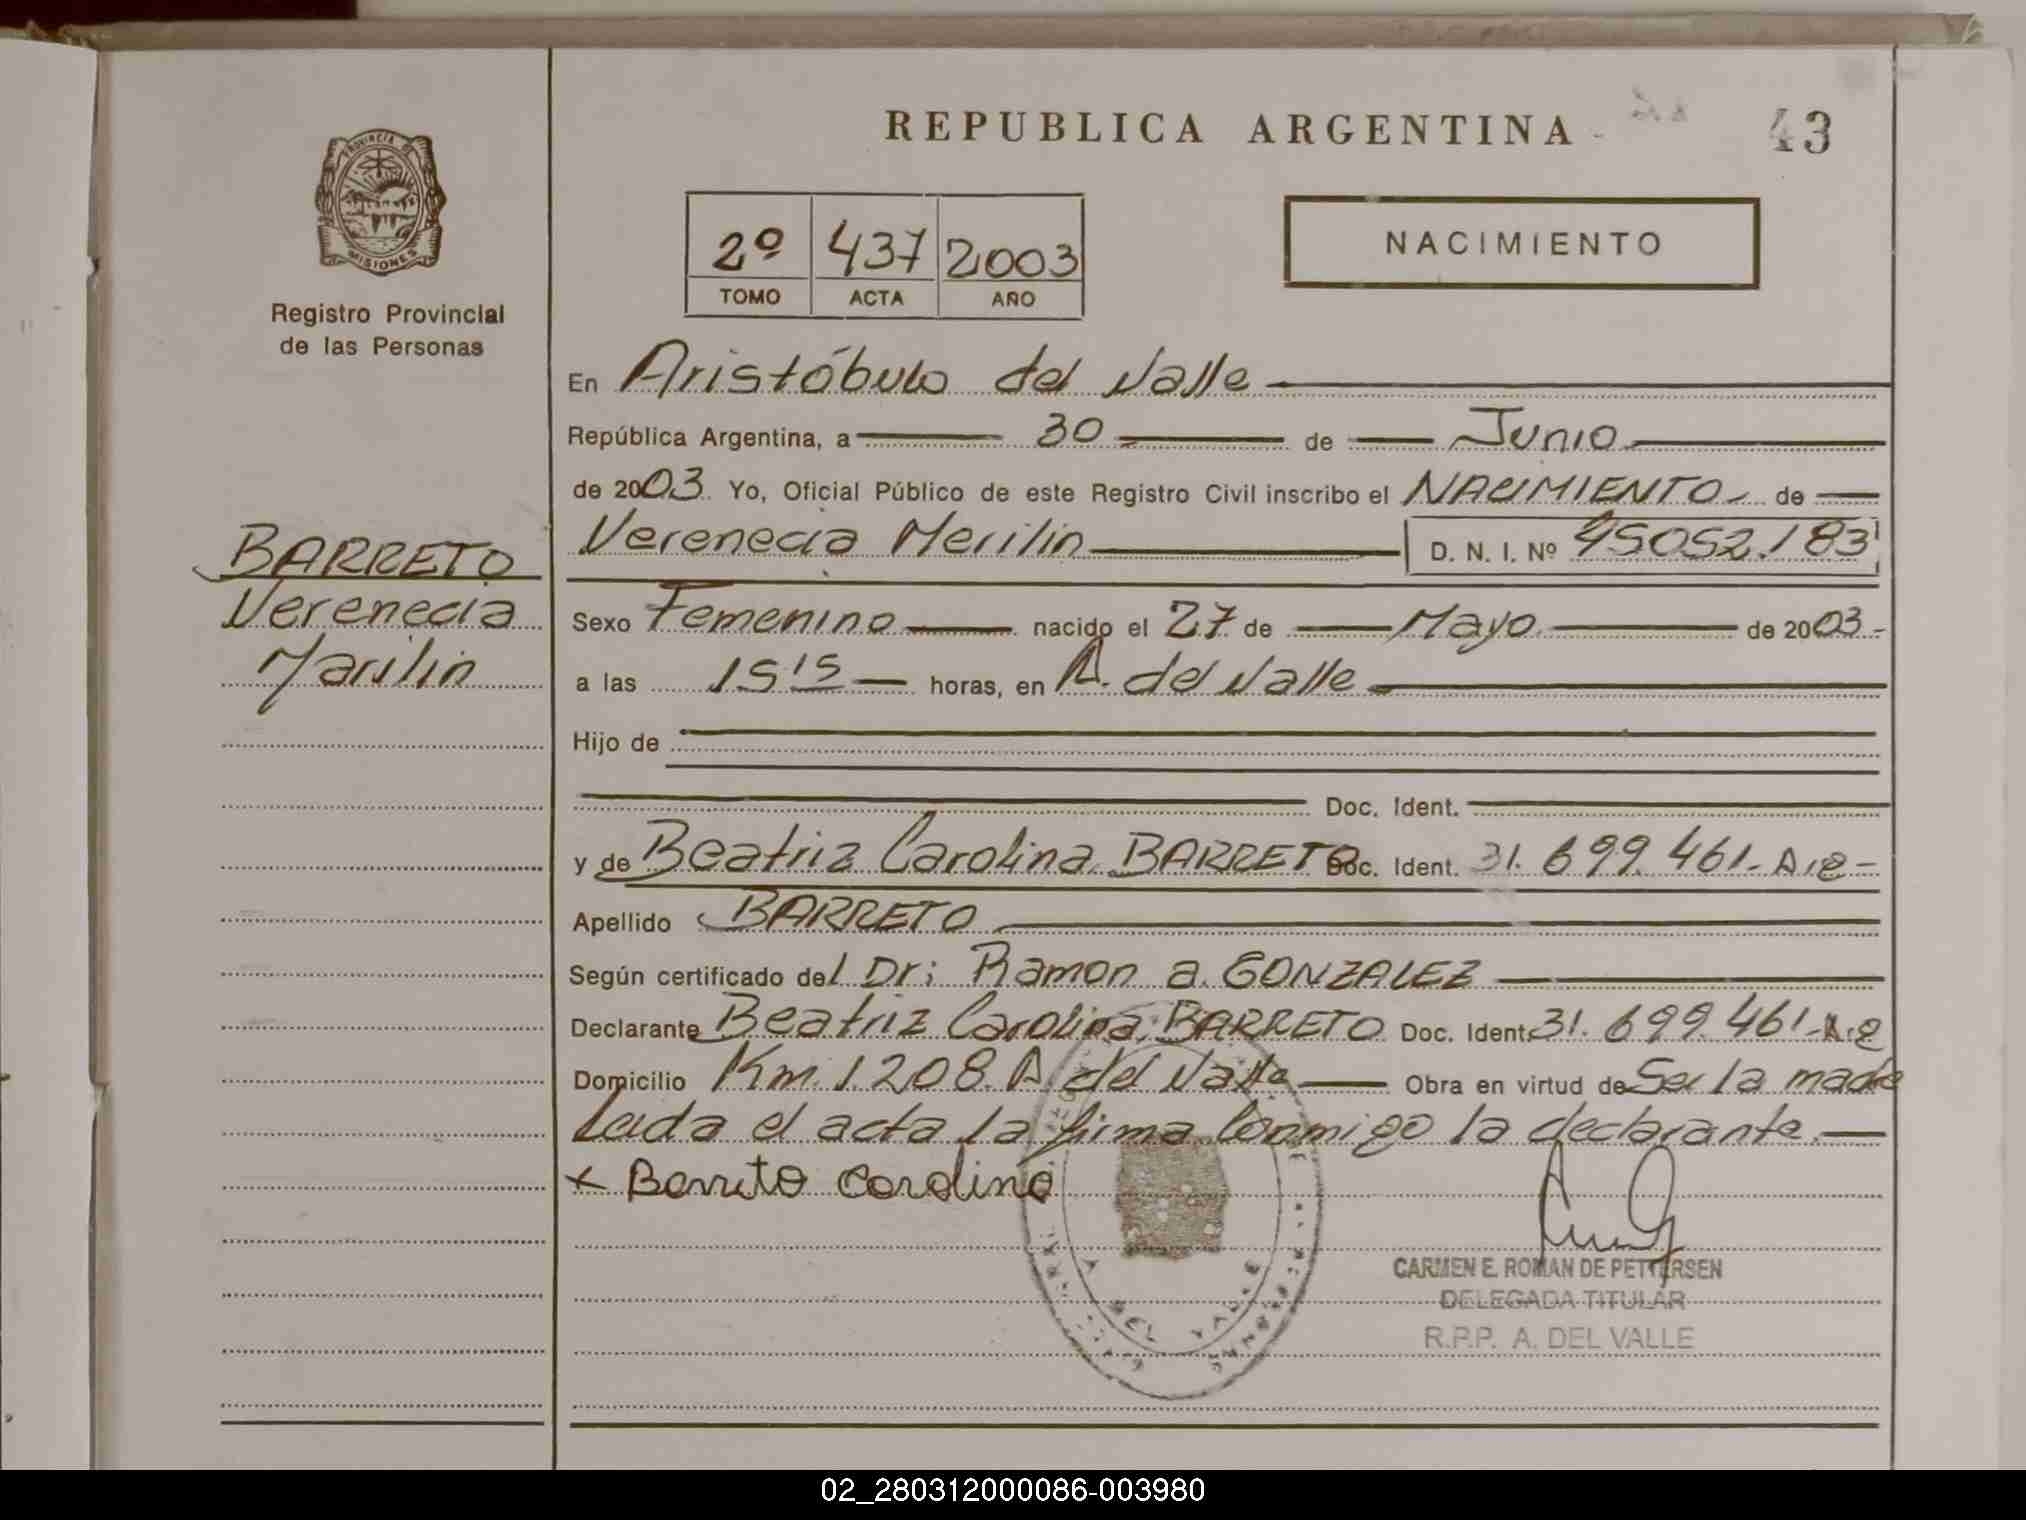 REPUBLICA ARGENTINA
43
PROVINCIA DE
MISIONES
Registro Provincial
de las Personas
2º 437 2003
TOMO ACTA AÑO
NACIMIENTO
En Aristóbulo del Valle
República Argentina, a 30 de Junio
de 2003. Yo, Oficial Público de este Registro Civil inscribo el NACIMIENTO de
Verenecia Merilin D. N. I. Nº 45052.183
BARRETO
Verenecia
Marilin
Sexo Femenino nacido el 27 de Mayo de 2003.-
a las 15 15 horas, en A. del Valle
Hijo de
Doc. Ident.
y de Beatriz Carolina BARRETO Doc. Ident. 31.699.461-
Apellido BARRETO
Según certificado del Dr: Ramon a. GONZALEZ
Declarante Beatriz Carolina BARRETO Doc. Ident. 31.699.461-
Domicilio Km. 1.208. A del Valle Obra en virtud de Ser la madre
Leida el acta la firma Conmigo la declarante.
x Barreto Carolina
CARMEN E. ROMAN DE PETTERSEN
DELEGADA TITULAR
R.P.P. A. DEL VALLE
A DEL VALLE
02_280312000086-003980